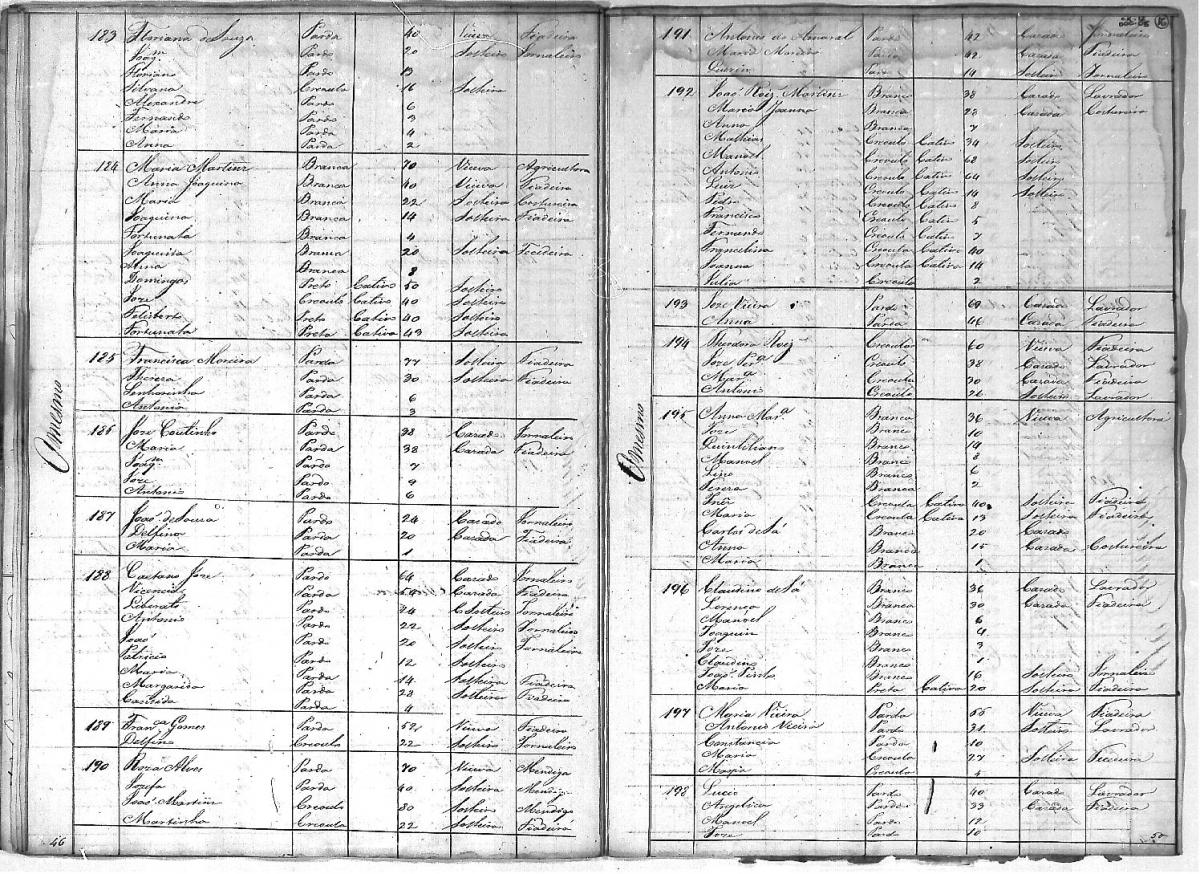 183 Floriana de Souza Parda 40 Viuva Fiadeira
Joaqm Pardo 20 Solteiro Jornaleiro
Floriano Pardo 13
Silvana Creoula 16 Solteira
Alexandre Pardo 6
Fernando Pardo 3
Maria Parda 4
Anna Parda 2
184 Maria Martins Branca 70 Viuva Agricultora
Anna Joaquina Branca 40 Viuva Fiadeira
Maria Branca 22 Solteira Costureira
Joaquina Branca 14 Solteira Fiadeira
Fortunata Branca 4
Joaquina Branca 20 Solteira Tecedeira
Branca 8
Domingos Preto Cativo 50 Solteiro
Joze Creoulo Cativo 40 Solteiro
Felisberto Preto Cativo 40 Solteiro
Fortunata Preta Cativa 43 Solteira
Omesmo
185 Francisca Moreira Parda 77 Solteira Fiadeira
Thereza Parda 30 Solteira Fiadeira
Senhorinha Parda 6
Antonia Parda 3
186 Joze Coutinho Pardo 38 Cazado Jornaleiro
Maria Parda 38 Cazada Fiadeira
Joaqm Pardo 7
Joze Pardo 9
Antonio Pardo 6
187 Joaõ de Souza Pardo 24 Cazado Jornaleiro
Delfina Parda 20 Cazada Fiadeira
Maria Parda 1
188 Caetano Joze Pardo 64 Cazado Jornaleiro
Vicencia Parda 54 Cazada Fiadeira
Liberato Pardo 24 Solteiro Jornaleiro
Antonio Pardo 22 Solteiro Jornaleiro
Joaõ Pardo 20 Solteiro Jornaleiro
Patricio Pardo 12 Solteiro
Maria Parda 14 Solteira Fiadeira
Margarida Parda 28 Solteira Fiadeira
Parda 4
189 Franca Gomes Parda 52 Viuva Fiadeira
Delfino Creoulo 22 Solteiro Jornaleiro
190 Roza Alves Parda 70 Viuva Mendiga
Jozefa Parda 40 Solteira Mendiga
Joaõ Martins Creoulo 80 Solteiro Mendigo
Martinha Creoula 22 Solteira Fiadeira
46
191 Antonio do Amaral Pardo 42 Cazado Jornaleiro
Maria Parda 42 Cazada Fiadeira
Pardo 14 Solteiro Jornaleiro
192 Joaõ Roiz Martins Branco 38 Cazado Lavrador
Maria Joanna Branca 28 Cazada Costureira
Anna Branca 7
Mathias Creoulo Cativo 34 Solteiro
Manoel Creoulo Cativo 68 Solteiro
Antonio Creoulo Cativo 64 Solteiro
Luiz Creoulo Cativo 14 Solteiro
Pedro Creoulo Cativo 8
Francisco Creoulo Cativo 5
Fernando Creoulo Cativo 7
Francelina Creoula Cativa 40
Joanna Creoula Cativa 14
Julia Creoula 2
193 Joze Vieira Pardo 60 Cazado Lavrador
Anna Parda 46 Cazada Fiadeira
194 Theodora Roiz Creoula 60 Viuva Fiadeira
Joze Pra Creoulo 38 Cazado Lavrador
Mara Creoula 30 Cazada Fiadeira
Antonio Creoulo 26 Solteiro Lavrador
Omesmo
195 Anna Mara Branca 36 Viuva Agricultora
Joze Branco 10
Quintiliano Branco 14
Manoel Branco 8
Lino Branco 6
Tereza Branca 2
Inês Creoula Cativa 40 Solteira Fiadeira
Maria Creoula Cativa 13 Solteira Fiadeira
Carlos de Sá Branco 20 Cazado
Anna Branca 15 Cazada Costureira
Maria Branca 1
196 Claudino de Sá Branco 36 Cazado Lavrador
Lorença Branca 30 Cazada Fiadeira
Manoel Branco 6
Joaquim Branco 4
Joze Branco 3
Claudino Branco 1
Joaõ Pinto Branco 16 Solteiro Jornaleiro
Maria Preta Cativa 20 Solteira Fiadeira
197 Maria Vieira Parda 55 Viuva Fiadeira
Antonio Vieira Pardo 21 Solteiro Lavrador
Constancia Parda 10
Maria Creoula 27 Solteira Ticeira
Creoulo 4
198 Lucio Pardo 40 Cazado Lavrador
Angelica Parda 33 Cazada Fiadeira
Manoel Pardo 12
Joze Pardo 10
50